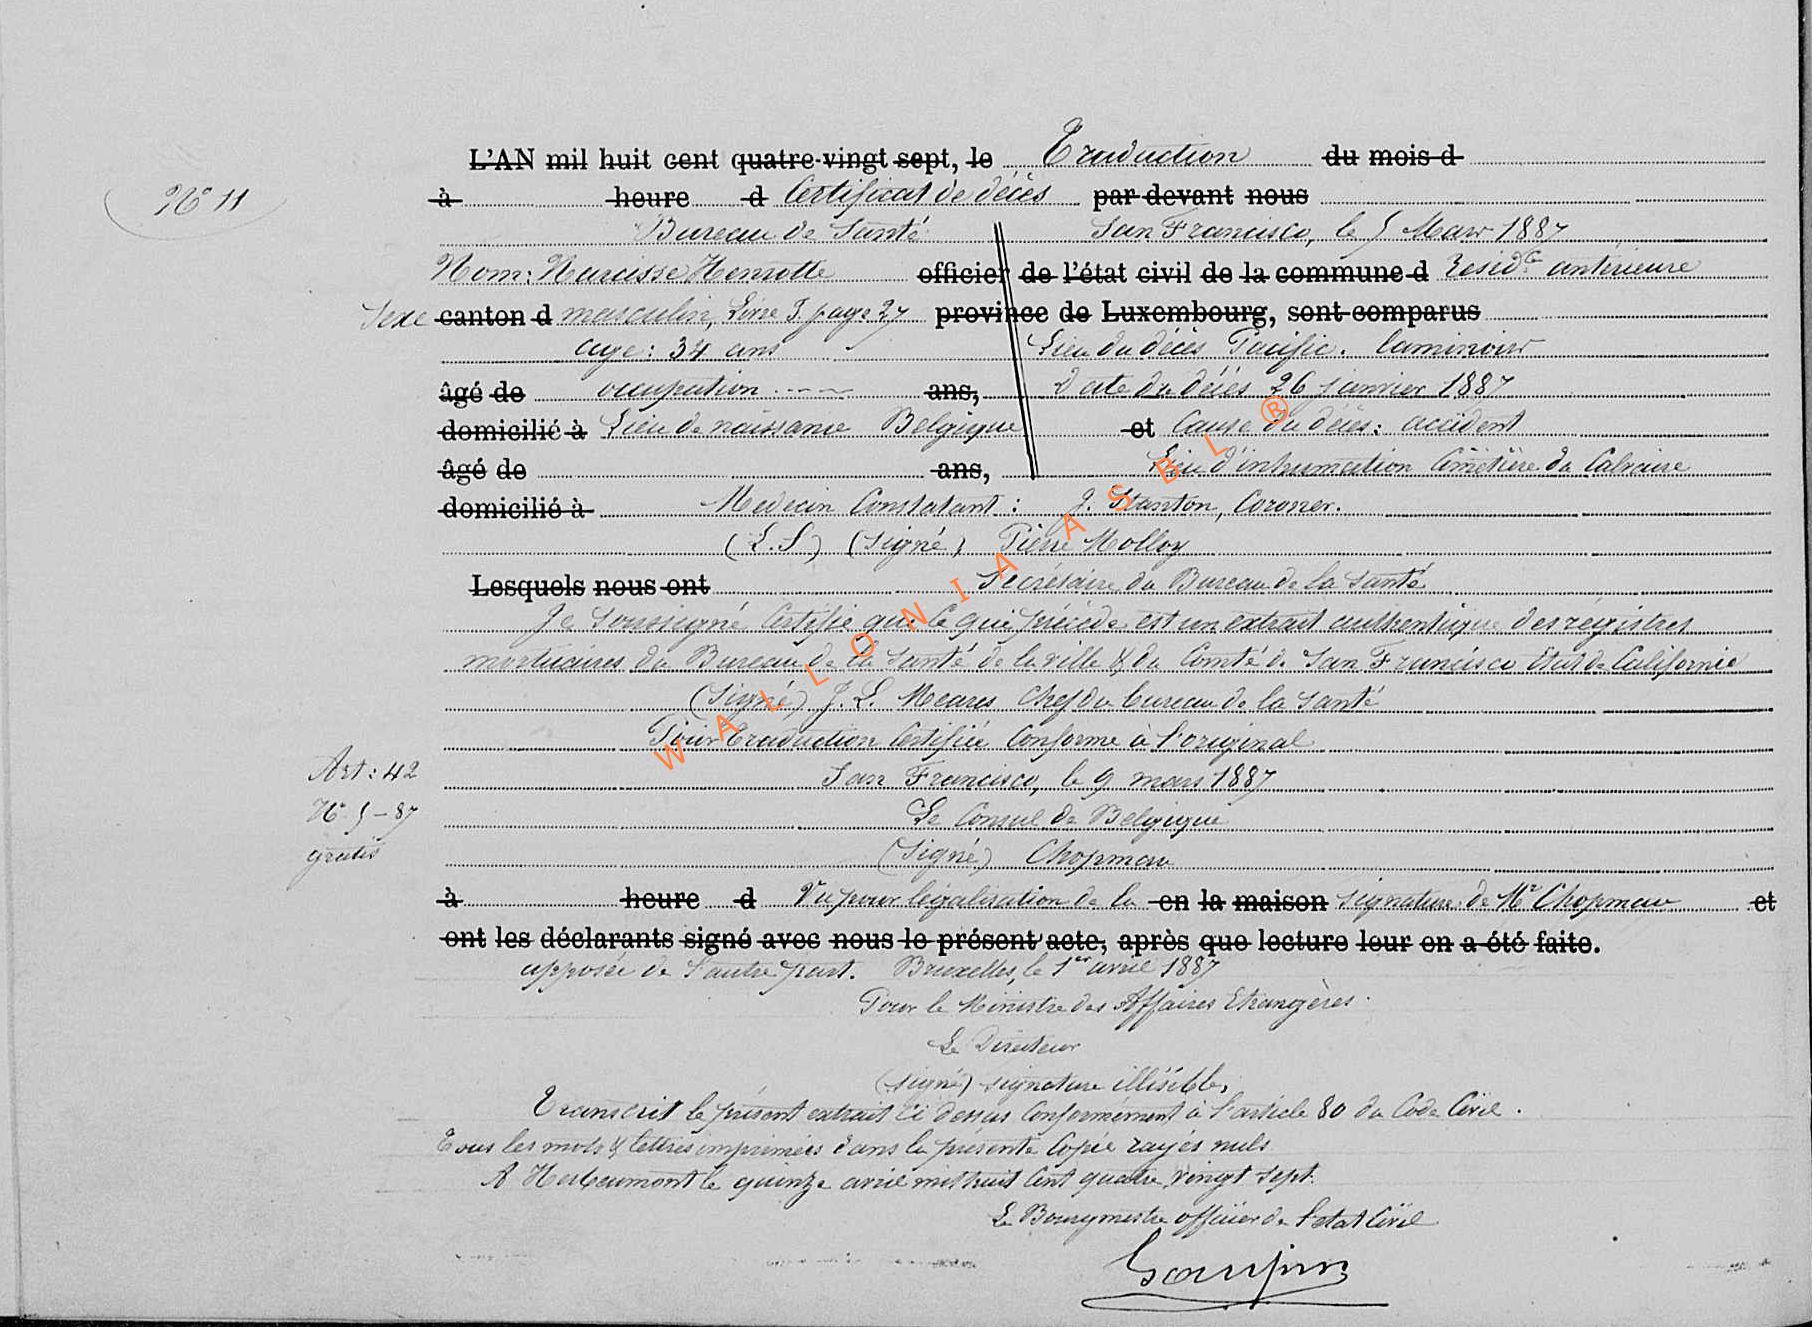 L'AN mil huit cent quatre-vingt sept, le Traduction du mois d
N° 11
à heure d Certificat de décès par devant nous
Bureau de Santé San Francisco, le 5 Mars 1887
Nom: Narcisse Henrotte officier de l'état civil de la commune d Résid.ce antérieure
Sexe canton d masculin, Livre J. page 27 province de Luxembourg, sont comparus
age: 34 ans Lieu du décès Pacific. laminoirs
âgé de occupation ---- ans, Date du décès 26 janvier 1887
domicilié à Lieu de naissance Belgique et Cause du décès: accident
âgé de ans, Lieu d'inhumation Cimétière du Calvaire
domicilié à Medecin Constatant: J. Stanton, Coroner.
(L.S) (signé) Pierre Molloy
Lesquels nous ont Secrétaire du Bureau de la Santé
Je soussigné Certifie que ce qui précède est un extrait authentique des régistres
mortuaires du Bureau de la Santé de la ville & du Comté de San Francisco État de Californie
(Signé) J. L. Meares Chef du bureau de la Santé
Pour traduction Certifiée Conforme à l'original
Art: 42
San Francisco, le 9 mars 1887
N° 5-87
Le Consul de Belgique
gratis
(Signé) Chopmau
à heure d Vu pour légalisation de la en la maison signature de Mr Chopmau et
ont les déclarants signé avec nous le présent acte, après que lecture leur en a été faite.
apposée de l'autre part. Bruxelles, le 1er avril 1887
Pour le Ministre des Affaires Etrangères.
Le Directeur
(signé) signature illisible,
Transcrit le présent extrait ci dessus Conformément à l'article 80 du Code Civil.
Tous les mots & lettres imprimées dans la présente Copie rayés nuls
A Herbeumont le quinze avril mil huit Cent quatre vingt sept.
Le Bourgmestre officier de l'état Civil
WALLONIA ASBL ®